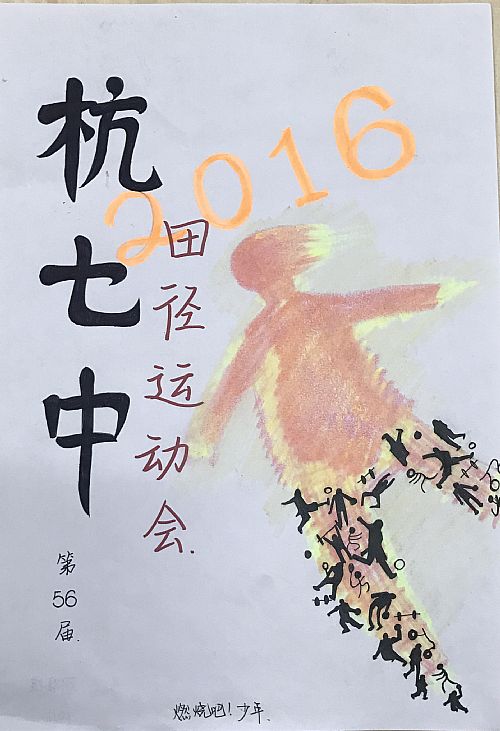 杭七中
2016
田径运动会.
第56届.
燃烧吧！少年.